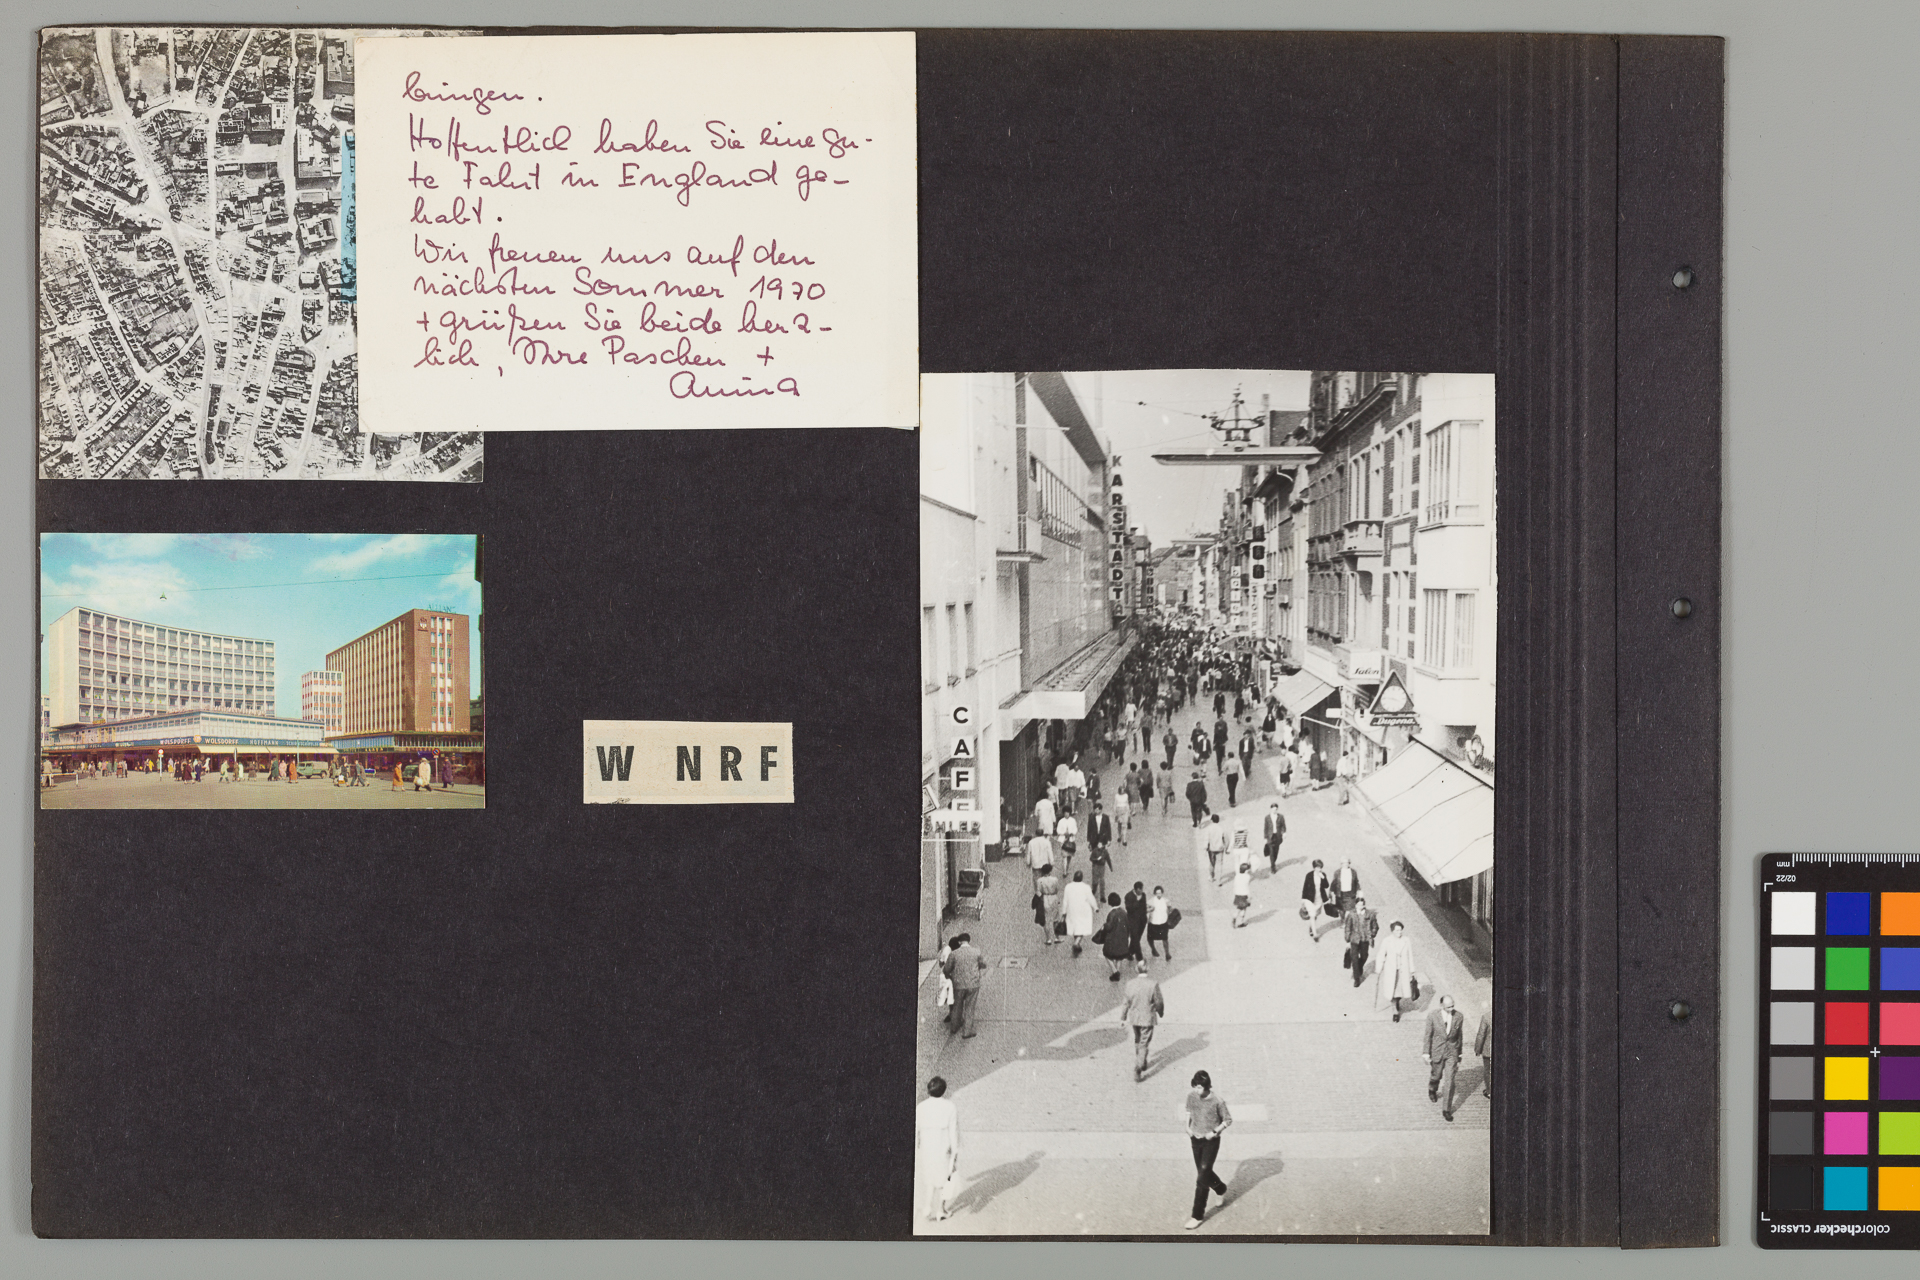 bringen.
Hoffentlich haben Sie eine gu-
te Fahrt in England ge-
habt.
Wir freuen uns auf den
nächsten Sommer 1970
+ grüßen Sie beide herz-
lich, Ihre Paschen +
Anina
WOLSDORFF
WOLSDORFF
HOFFMANN
W NRF
KARSTADT
CAFE
Dugena
mm
02/22
colorchecker CLASSIC